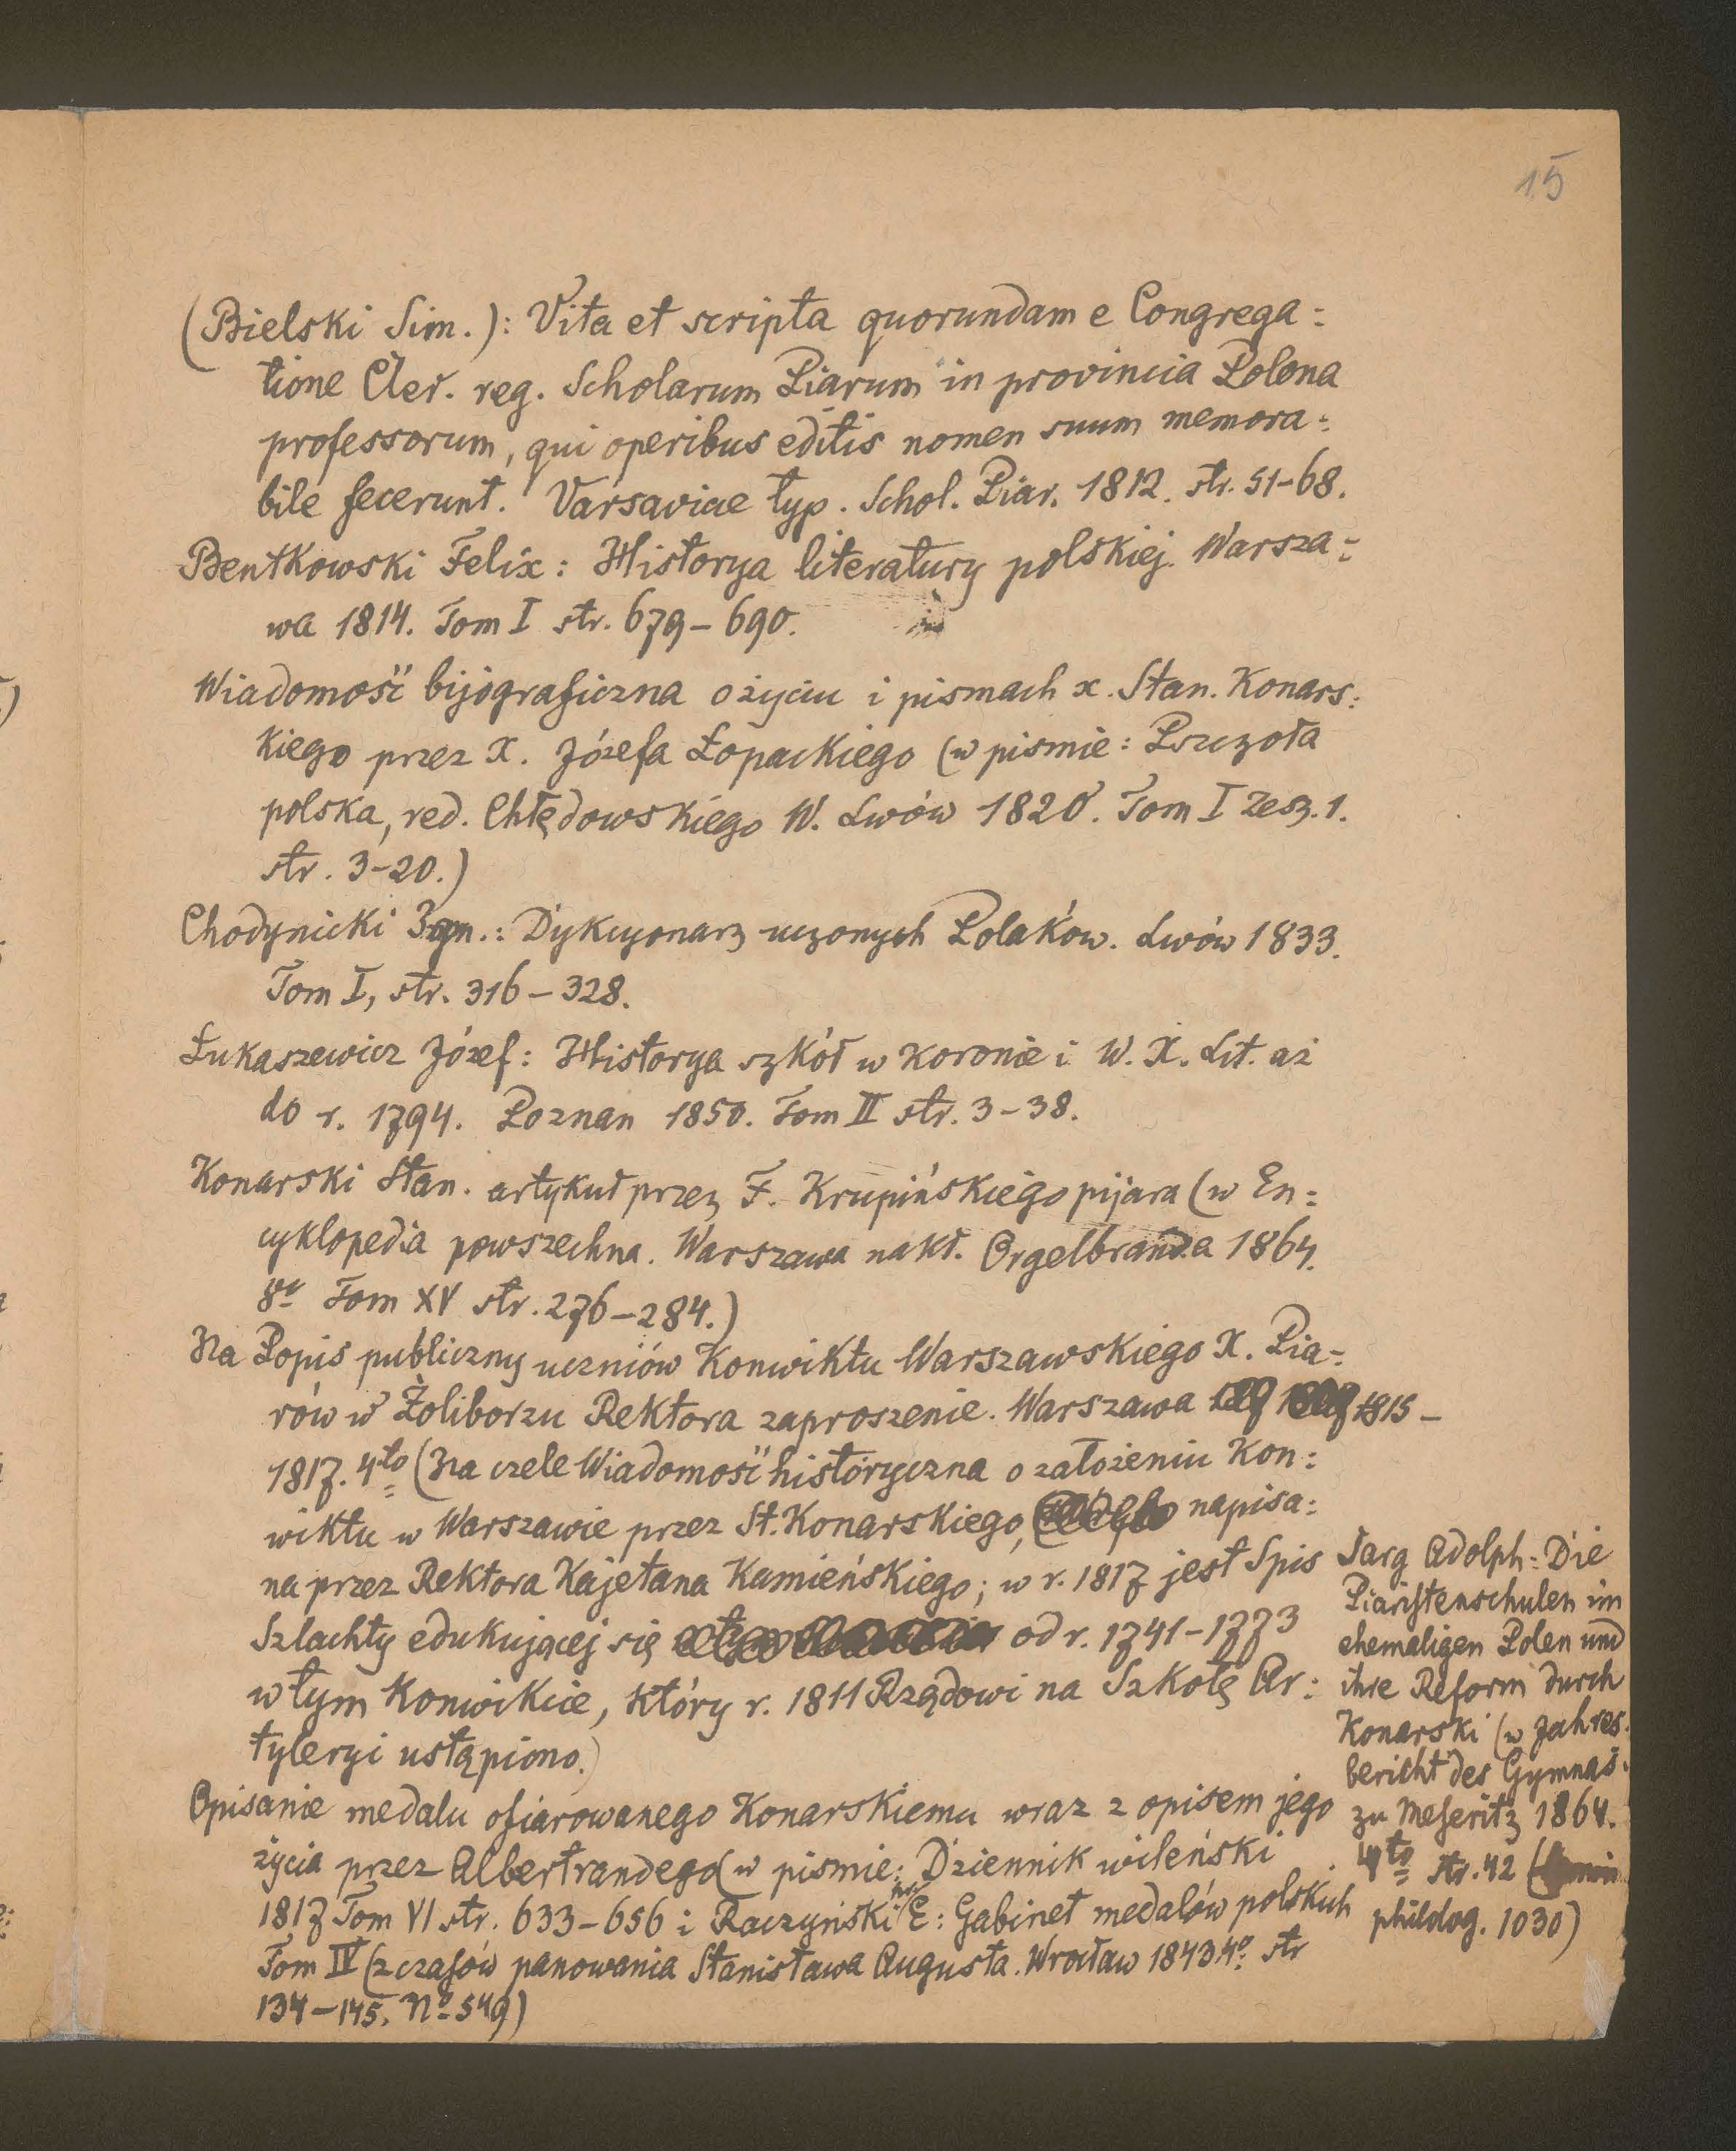 15
(Bielski Sim.): Vita et scripta quorundam e Congrega=
tione Cler. reg. Scholarum Piarum in provincia Polona
professorum, qui operibus editis nomen suum memora=
bile fecerunt. Varsaviae typ. Schol. Piar. 1812. str. 51-68.
Bentkowski Felix: Historya literatury polskiej. Warsza=
wa 1814. Tom I str. 679-690.
Wiadomość bijograficzna o życiu i pismach x. Stan. Konars=
kiego przez X. Józefa Łopackiego (w piśmie: Pszczoła
polska, red. Chłędowskiego W. Lwów 1820. Tom I Zesz. 1.
str. 3-20.)
Chodynicki Ign.: Dykcyonarz uczonych Polaków. Lwów 1833.
Tom I, str. 316-328.
Łukaszewicz Józef: Historya szkół w Koronie i W. X. Lit. aż
do r. 1794. Poznan 1850. Tom II str. 3-38.
Konarski Stan. artykuł przez F. Krupińskiego pijara (w En=
cyklopedia powszechna. Warszawa nakł. Orgelbranda 1864.
Tom XV str. 276-284.)
Na Popis publiczny uczniów Konwiktu Warszawskiego X. Pia=
rów w Żoliborzu Rektora zaproszenie. Warszawa 1815-
1817. 4to (Na czele Wiadomość historyczna o założeniu Kon=
wiktu w Warszawie przez St. Konarskiego, napisa=
na przez Rektora Kajetana Kamieńskiego; w r. 1817 jest Spis
Szlachty edukującej się od r. 1741-1773
w tym Konwikcie, który r. 1811 Rządowi na Szkołę Ar=
tyleryi ustąpiono.)
Opisanie medalu ofiarowanego Konarskiemu wraz z opisem jego
życia przez Albertrandego (w piśmie: Dziennik wileński
1817 Tom VI str. 633-656 i Raczyński hr. E: Gabinet medalów polskich
Tom IV (z czasów panowania Stanisława Augusta. Wrocław 1843. 4o. str
134-145. No 549)
Jarg Adolph: Die
Piaristenschulen im
ehemaligen Polen und
ihre Reform durch
Konarski (w Jahres=
bericht des Gymnas.
zu Meseritz 1864.
4to str. 42
philolog. 1030)